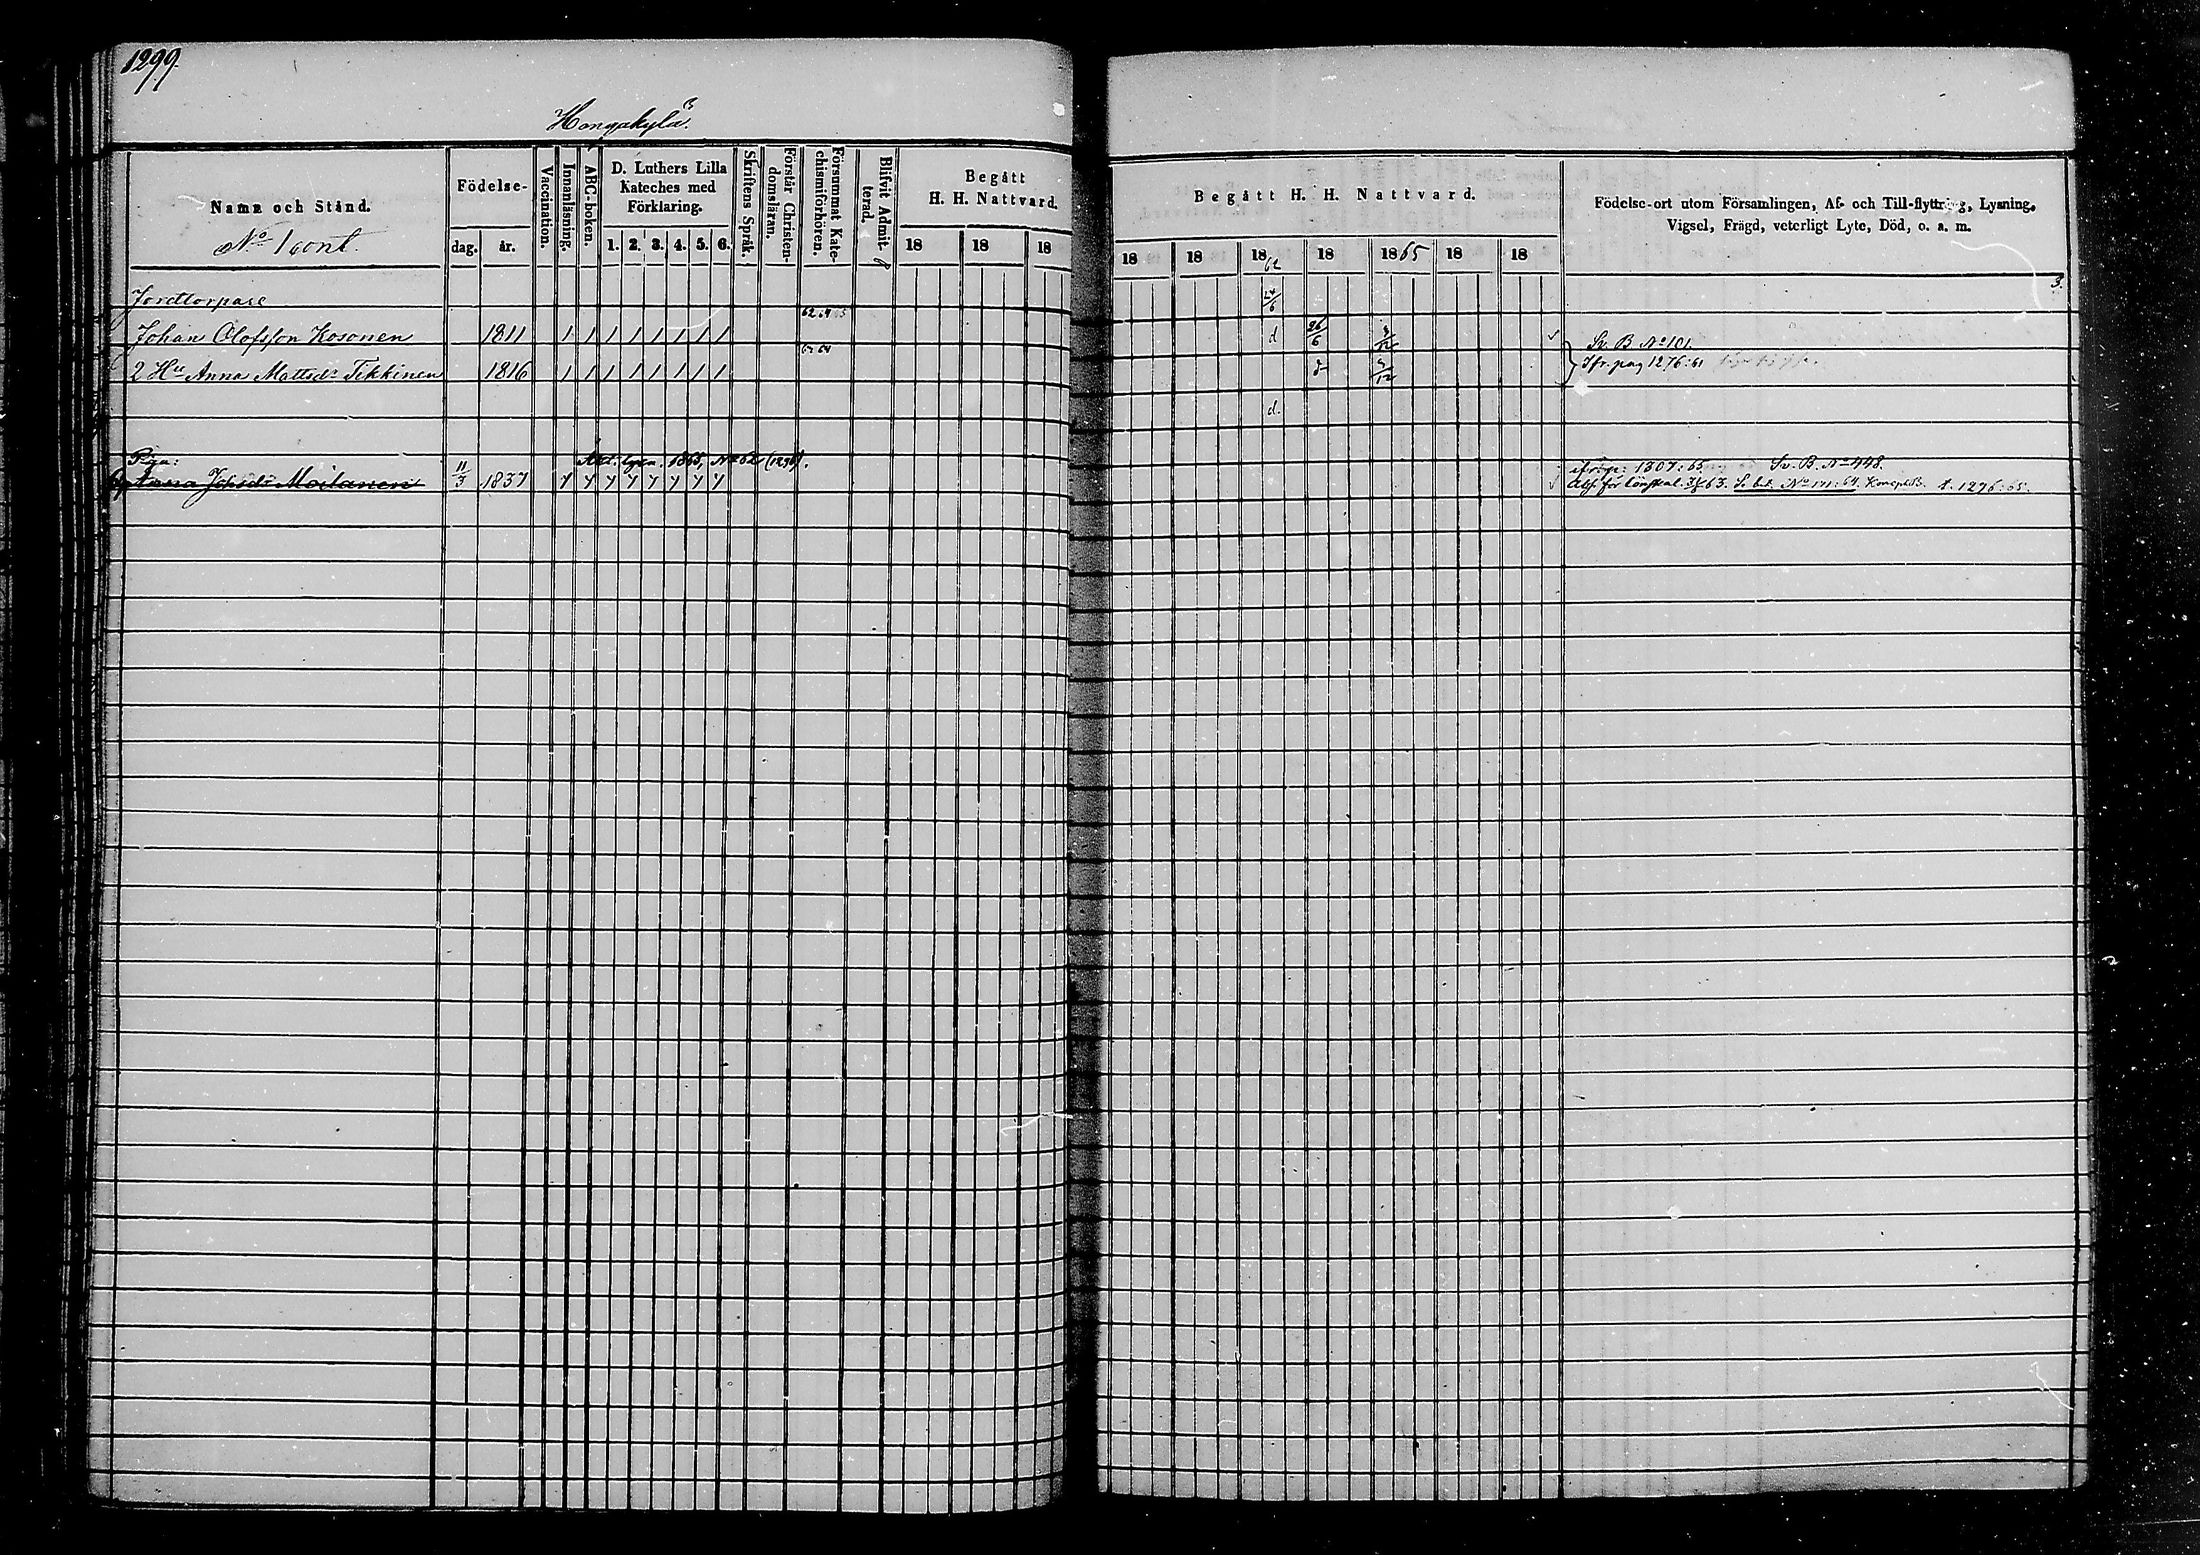 1299.
Hongakylä.
Namn och Stånd.
Födelse-
dag.
år.
Vaccination.
Innanläsning.
ABC-boken.
D. Luthers Lilla
Kateches med
Förklaring.
1. 2. 3. 4. 5. 6.
Skriftens Språk.
Förstår Christen-
domsläran.
Försummat Kate-
chismiförhören.
Blifvit Admit-
terad.
Begått
H. H. Nattvard.
18 18 18
Begått H. H. Nattvard.
18 18 18 62 18 18 65 18 18
Födelse-ort utom Församlingen, Af- och Till-flyttning, Lysning,
Vigsel, Frägd, veterligt Lyte, Död, o. a. m.
No 1 cont.
3.
Jordtorpare
24/6
62 64 65
Johan Olofsson Kosonen 1811 1 1 1 1 1 1 1 1 d 26/6 Sv. B No 101.
62 64
2 Hu Anna Mattsdr Tikkinen 1816 1 1 1 1 1 1 1 1 3/12 Jfr. pag 1276:61
d.
Piga: 1865, No 62 (1296). 1307:65. Sv. B. No 448.
Anna Johsdr Moilanen 11/3 1837 för lönskal. 63. No 171:64. t. 1296:65.